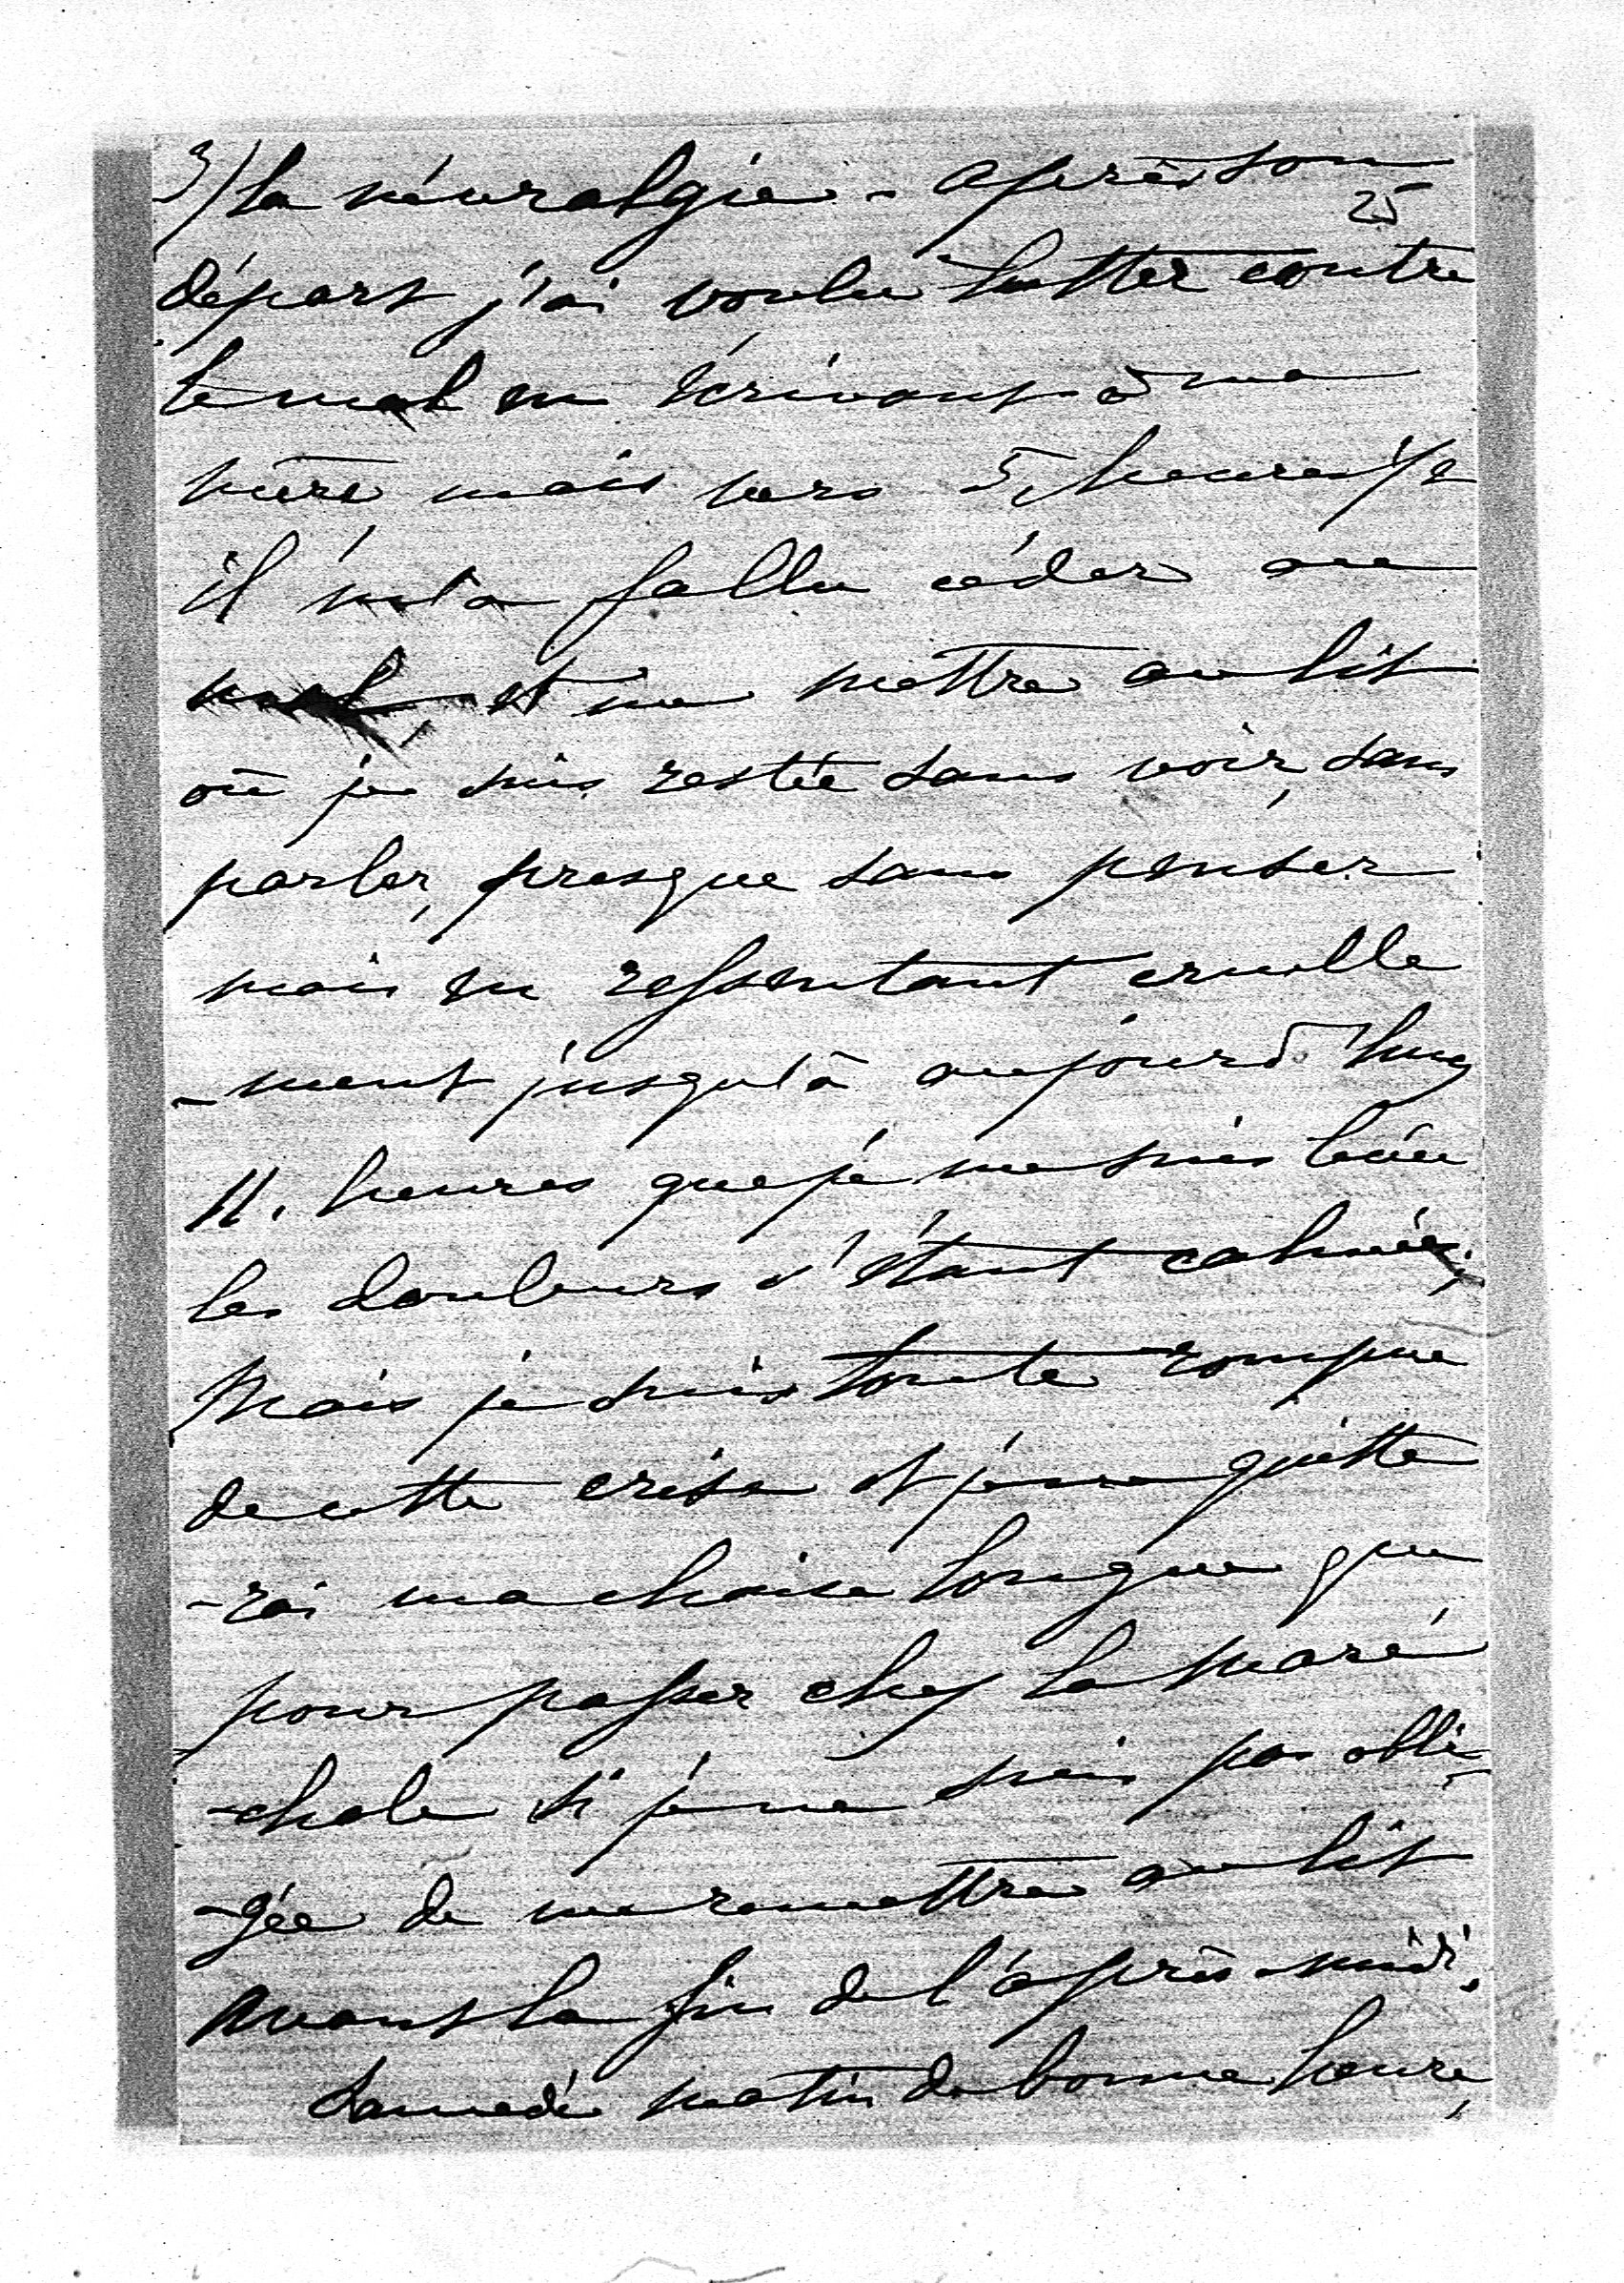 3/ la névralgie - après son
25
départ j'ai voulu lutter contre
le mal en écrivant à ma
mère mais vers 5 heures 1/2
il m'a fallu céder au
mal et me mettre au lit
où je suis restée sans voir, sans
parler, presque sans penser
mais en ressentant cruelle
-ment jusqu'à aujourd'huy
11. heures que je me suis levée
les douleurs s'étant calmées,
Mais je suis toute rompue
de cette crise et je ne quitte
-rai ma chaise longue que
pour passer chez la Maré
-chale si je ne suis pas obli-
-gée de me remettre au lit
avant la fin de l'après-midi.
Samedi matin de bonne heure,